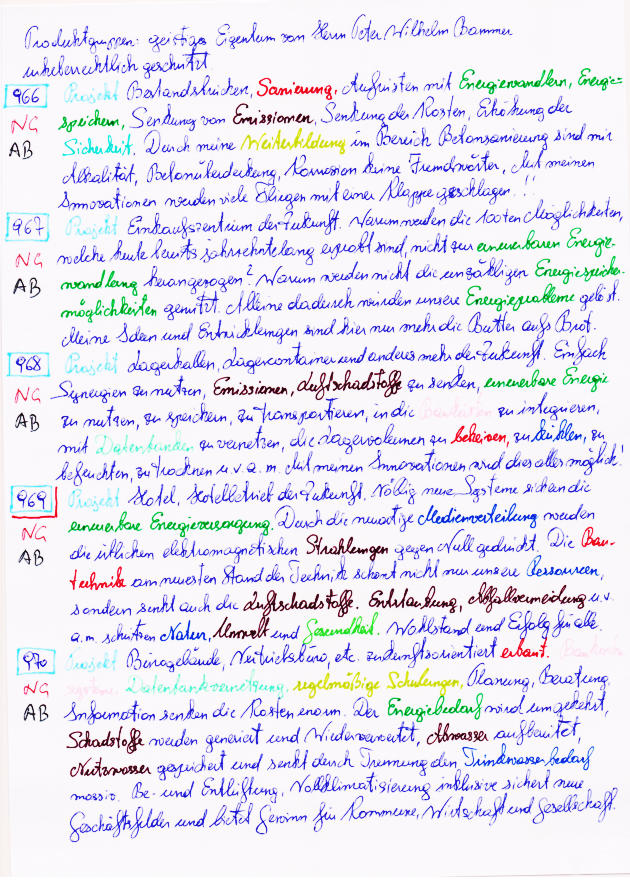 Produktgruppen: geistiges Eigentum von Herrn Peter Wilhelm Bammer
urheberrechtlich geschützt.
966 Projekt Bestandsbrücken, Sanierung, Aufrüsten mit Energiewandlern, Energie=
NG speichern, Senkung von Emissionen, Senkung der Kosten, Erhöhung der
AB Sicherheit. Durch meine Weiterbildung im Bereich Betonsanierung sind mir
Alkalität, Betonüberdeckung, Korrosion keine Fremdwörter, Mit meinen
Innovationen werden viele Fliegen mit einer Klappe geschlagen.!!
967 Projekt Einkaufszentrum der Zukunft. Warum werden die 100ten Möglichkeiten,
NG welche heute bereits jahrzehntelang erprobt sind, nicht zur erneuerbaren Energie-
AB wandlung herangezogen? Warum werden nicht die unzähligen Energiespeicher
möglichkeiten genutzt. Alleine dadurch würden unsere Energieprobleme gelöst.
Meine Ideen und Entwicklungen sind hier nur mehr die Butter aufs Brot.
968 Projekt Lagerhallen, Lagercontainer und anderes mehr der Zukunft. Einfach
NG Synergien zu nutzen, Emissionen, Luftschadstoffe zu senken, erneuerbare Energie
AB zu nutzen, zu speichern, zu transportieren, in die zu integrieren,
mit Datenbanken zu vernetzen, die Lagervolumen zu beheizen, zu kühlen, zu
befeuchten, zu trocknen u.v.a.m. Mit meinen Innovationen wird dies alles möglich!
969 Projekt Hotel, Hotelbetrieb der Zukunft. Völlig neue Systeme sichern die
NG erneuerbare Energieversorgung. Durch die neuartige Medienverteilung werden
AB die üblichen elektromagnetischen Strahlungen gegen Null gedrückt. Die Bau-
technik am neuesten Stand der Technik schont nicht nur unsere Ressourcen,
sondern senkt auch die Luftschadstoffe. Entstaubung, Abfallvermeidung u.v.
a.m. schützen Natur, Umwelt und Gesundheit. Wohlstand und Erfolg für alle.
970 Projekt Bürogebäude, Vertriebsbüro, etc. zukunftsorientiert erbaut.
NG systeme, Datenbankvernetzung, regelmäßige Schulungen, Planung, Beratung,
AB Information senken die Kosten enorm. Der Energiebedarf wird umgekehrt,
Schadstoffe werden generiert und Wiederverwertet, Abwasser aufbereitet,
Nutzwasser gespeichert und senkt durch Trennung den Trinkwasserbedarf
massiv. Be- und Entlüftung, Vollklimatisierung inklusive sichert neue
Geschäftsfelder und bietet Gewinn für Kommune, Wirtschaft und Gesellschaft.